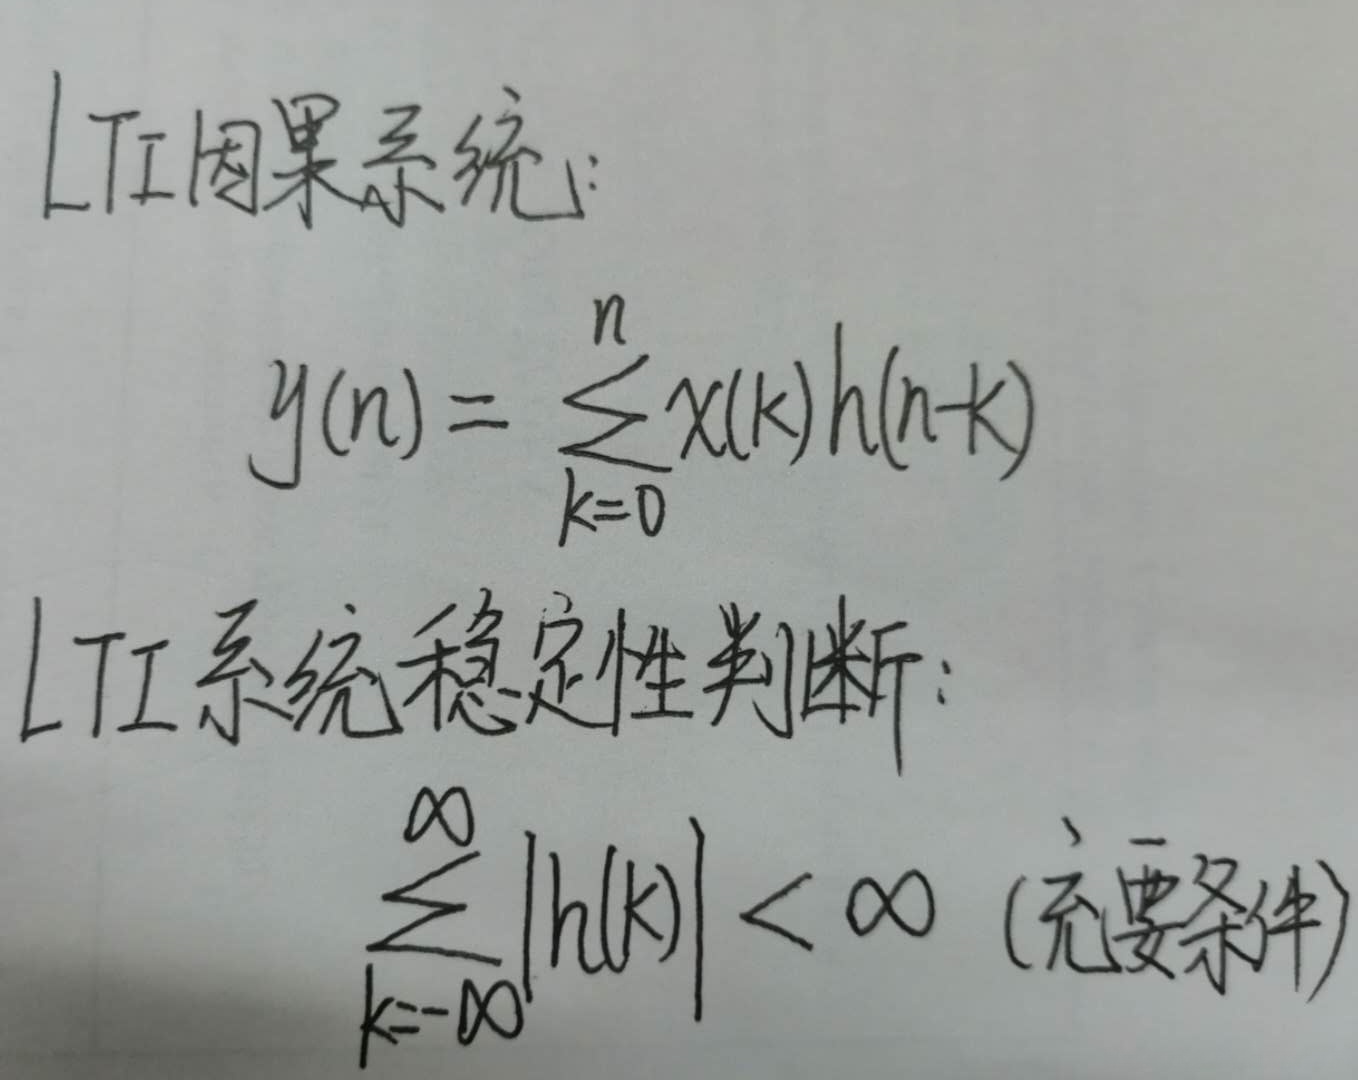 LTI因果系统:
y(n) = \sum_{k=0}^{n} x(k)h(n-k)
LTI系统稳定性判断:
\sum_{k=-\infty}^{\infty} |h(k)| < \infty (充要条件)